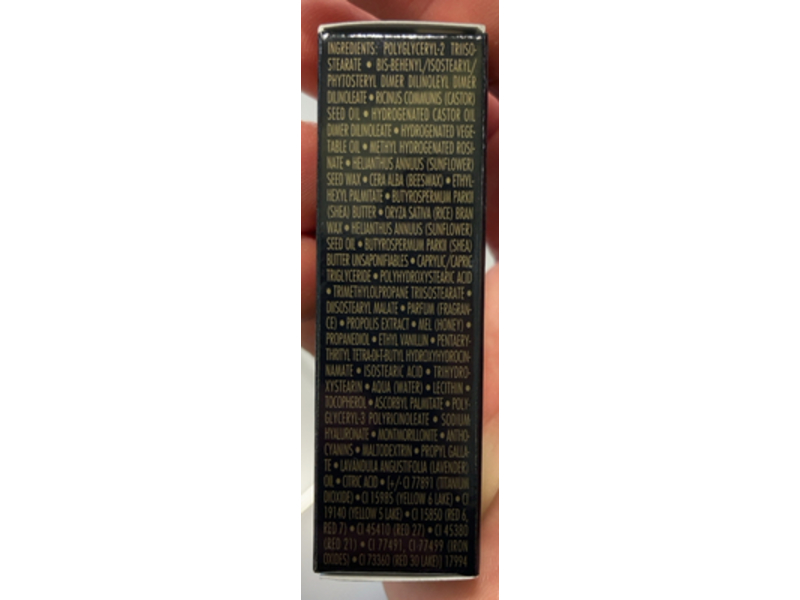 INGREDIENTS: POLYGLYCERYL-2 TRIISO-
STEARATE • BIS-BEHENYL/ISOSTEARYL/
PHYTOSTERYL DIMER DILINOLEYL DIMER
DILINOLEATE • RICINUS COMMUNIS (CASTOR)
SEED OIL • HYDROGENATED CASTOR OIL
DIMER DILINOLEATE • HYDROGENATED VEGE-
TABLE OIL • METHYL HYDROGENATED ROSI-
NATE • HELIANTHUS ANNUUS (SUNFLOWER)
SEED WAX • CERA ALBA (BEESWAX) • ETHYL-
HEXYL PALMITATE • BUTYROSPERMUM PARKII
(SHEA) BUTTER • ORYZA SATIVA (RICE) BRAN
WAX • HELIANTHUS ANNUUS (SUNFLOWER)
SEED OIL • BUTYROSPERMUM PARKII (SHEA)
BUTTER UNSAPONIFIABLES • CAPRYLIC/CAPRIC
TRIGLYCERIDE • POLYHYDROXYSTEARIC ACID
• TRIMETHYLOLPROPANE TRIISOSTEARATE •
DIISOSTEARYL MALATE • PARFUM (FRAGRAN-
CE) • PROPOLIS EXTRACT • MEL (HONEY) •
PROPANEDIOL • ETHYL VANILLIN • PENTAERY-
THRITYL TETRA-DI-T-BUTYL HYDROXYHYDROCIN-
NAMATE • ISOSTEARIC ACID • TRIHYDRO-
XYSTEARIN • AQUA (WATER) • LECITHIN •
TOCOPHEROL • ASCORBYL PALMITATE • POLY-
GLYCERYL-3 POLYRICINOLEATE • SODIUM
HYALURONATE • MONTMORILLONITE • ANTHO-
CYANINS • MALTODEXTRIN • PROPYL GALLA-
TE • LAVANDULA ANGUSTIFOLIA (LAVENDER)
OIL • CITRIC ACID • [+/- CI 77891 (TITANIUM
DIOXIDE) • CI 15985 (YELLOW 6 LAKE) • CI
19140 (YELLOW 5 LAKE) • CI 15850 (RED 6,
RED 7) • CI 45410 (RED 27) • CI 45380
(RED 21) • CI 77491, CI 77499 (IRON
OXIDES) • CI 73360 (RED 30 LAKE)] 17994